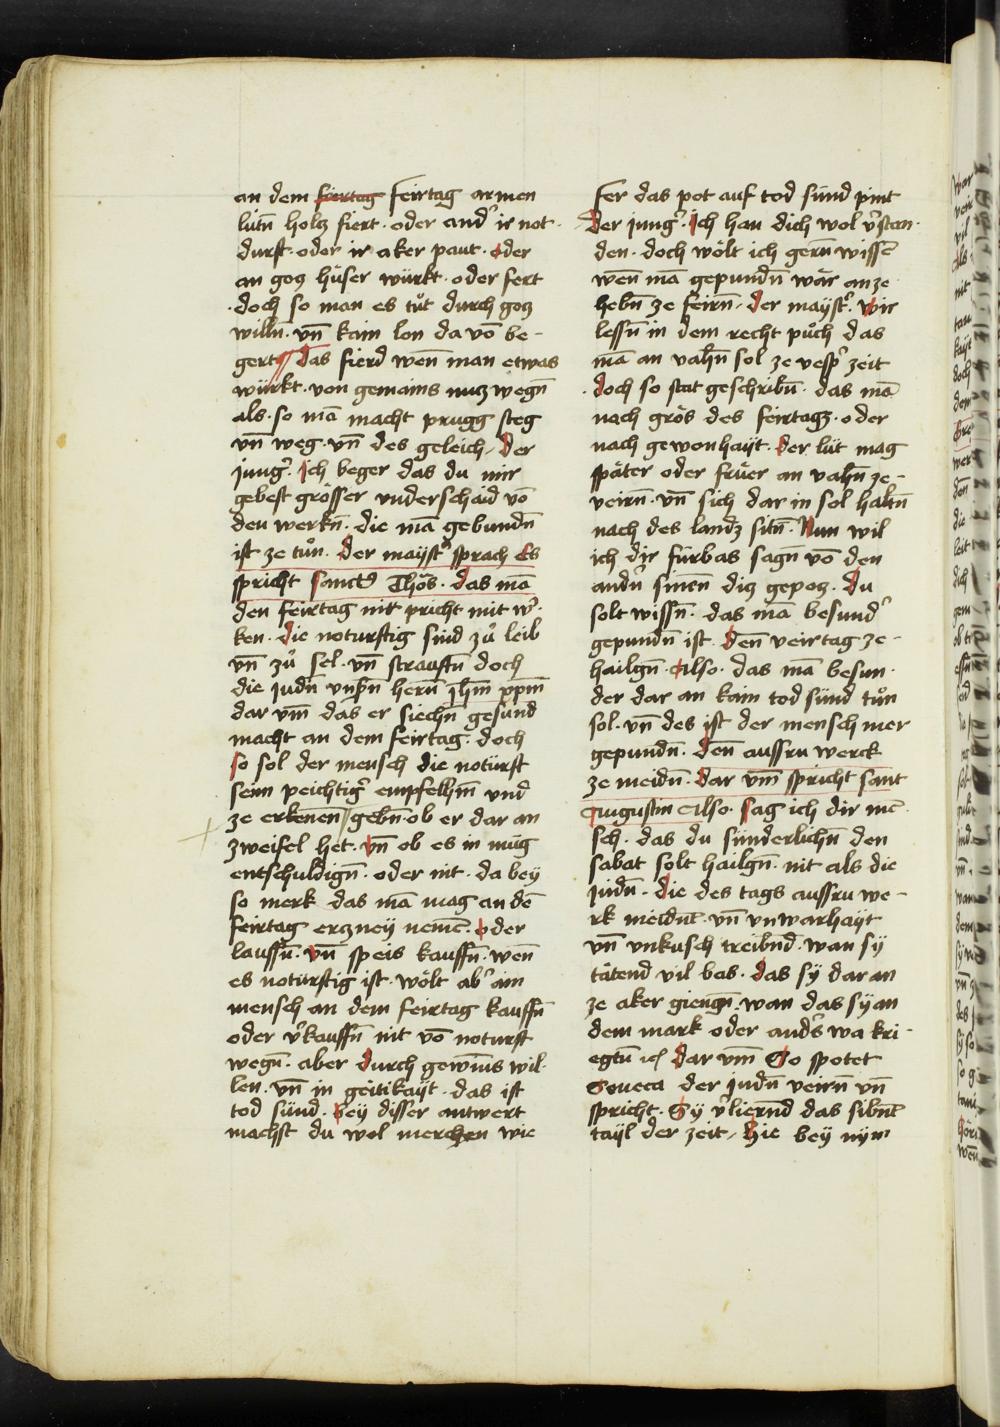 an dem feirtag feirtag armen
lütn̄ holcz fiert · oder and' ir not ·
durft · oder ir aker paut · oder
an gocz hüser würkt · oder fert
· doch so man es tůt durch gocz
willn̄ · vn̄ kain lon da vō be -
gert das fierd wen̄ man etwas
würkt · von gemains nucz wegn̄
als · so mā macht prugg steg
vn̄ weg · vn̄ des geleich / Der
jung' · Ich beger das du mir
gebest grösser vnderschaid vō
den werkn̄ · die mā gebundn̄
ist ze tůn · Der mayst' sprach Es
spricht sanct9 Thōs · das mā
den feirtag nit pricht mit w' ·
ken · die noturftig sind zů leib
vn̄ zů sel · vn̄ strauftn̄ doch
die judn̄ vnsn̄ hern̄ jhm̄ xpm̄
dar vm̄ das er siechn̄ gesund
macht an dem feirtag · doch
so sol der mensch die notürft
seim peichtig' empfelhm̄ vnd
ze erkenen gebn̄ · ob er dar an
zweifel het · vn̄ ob es in müg
entschuldign̄ · oder nit · da bey
so merk das mā mag an dē
feirtag erczney nemē · oder
lauffn̄ · vn̄ speis kauffn̄ · wen̄
es noturftig ist · wölt ab' ain
mensch an dem feirtag kauffn̄
oder v'kauffn̄ nit vō noturft
wegn̄ · aber durch gewins wil ·
len · vn̄ in geitikayt · das ist
tod sünd · Bey disser antwert
machst du wol merchen wie
fer das pot auf tod sünd pint
Der jung' · Ich han dich wol v'stan ·
den · doch wölt ich gern̄ wissē
wen̄ mā gepundn̄ wär an ze
hebn̄ ze feirn̄ / der mayst' · Wir
lessn̄ in dem recht půch das
mā an vahn̄ sol ze vesp' zeit
· doch so stat geschribn̄ · das mā
nach grös des feirtagz · oder
nach gewonhayt · der lüt mag
später oder früer an vahn̄ ze -
veirn̄ · vn̄ sich dar in sol haltn̄
nach des landz sitn̄ · Nun wil
ich dir fürbas sagn̄ vō den
andn̄ sinen̄ dicz gepocz · Du
solt wissn̄ · das mā besund'
gepundn̄ ist · den̄ veirtag ze -
hailgn̄ · Also · das mā besun ·
der dar an kain tod sünd tůn
sol · vn̄ des ist der mensch mer
gepundn̄ · den̄ aussru werck
ze meidn̄ · Dar vm̄ spricht sant
Augustin Also · sag ich dir mē
sch · das du sünderlichn̄ den
sabat solt hailgn̄ · nit als die
judn̄ · die des tags aussru we -
rk meidnt · vn̄ vnwarhayt
vn̄ vnkusch treibn̄d · wan sy
tätend vil bas · das sy dar an
ze aker giengn̄ · wan das sy an
dem mark oder and's wa kri -
egtn̄ Dar vm̄ So spotet
Seneca der judn̄ veirn̄ vn̄
spricht · Sy v'liern̄d das sibnt
tayl der zeit / Hie bey nym